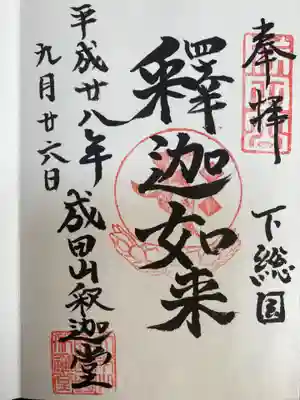 奉拝
下総国
釋迦如来
平成廿八年
成田山釈迦堂
九月廿六日